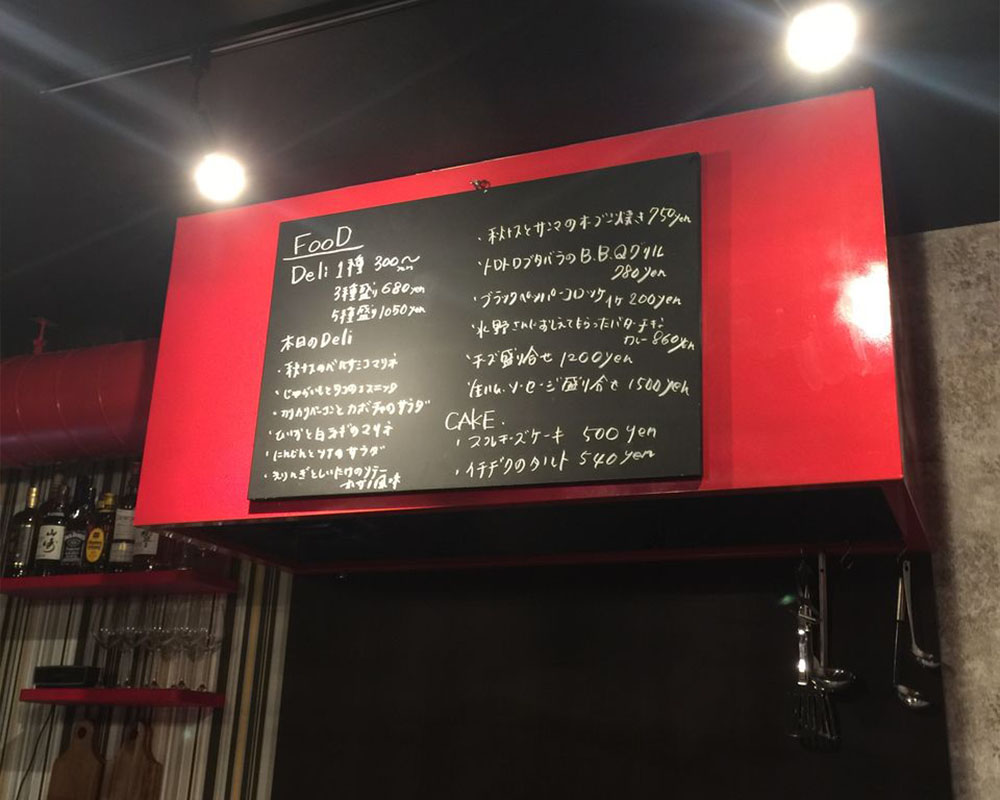 FOOD
Deli 1種 300yen〜
3種盛り 680yen
5種盛り 1050yen
本日のDeli
・秋ナスのバルサミコマリネ
・じゃがいもとタコのエスニック
・カリカリベーコンとカボチャのサラダ
と白ネギのマリネ
・にんじんとツナのサラダ
・えりんぎとしいたけのソテー
風味
・秋ナスとサンマのオーブン焼き 750yen
・トロトロブタバラのB.B.Qグリル
780yen
・ブラックペッパーコロッケ 1ヶ 200yen
・水野さんにおしえてもらったバターチキン
カレー 860yen
・チーズ盛り合せ 1200yen
・生ハム、ソーセージ盛り合せ 1500yen
CAKE.
・スフレチーズケーキ 500yen
・イチヂクのタルト 540yen
山崎